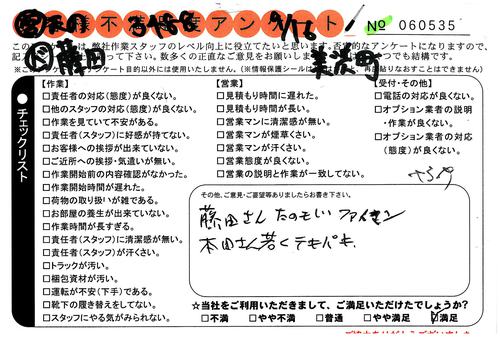 様不満度アンケート
9/26
No 060535
藤田
このアンケートは、弊社作業スタッフのレベル向上に役立てたいと思います。否定的なアンケートになりますので、
【作業】
□責任者の対応(態度)が良くない。
□他のスタッフの対応(態度)が良くない。
□作業を見ていて不安がある。
□責任者(スタッフ)に好感が持てない。
□お客様への挨拶が出来ていない。
□ご近所への挨拶・気遣いが無い。
□作業開始前の内容確認がなかった。
□作業開始時間が遅れた。
□荷物の取り扱いが雑である。
□お部屋の養生が出来ていない。
□作業時間が長すぎる。
□責任者(スタッフ)に清潔感が無い。
□責任者(スタッフ)が汗くさい。
□トラックが汚い。
□梱包資材が汚い。
□運転が不安(下手)である。
□靴下の履き替えをしてない。
□スタッフにやる気がみられない。
【営業】
□見積もり時間に遅れた。
□見積もり時間が長い。
□営業マンに清潔感が無い。
□営業マンが煙草くさい。
□営業マンが汗くさい。
□営業態度が良くない。
□営業の説明と作業が一致してない。
【受付・その他】
□電話の対応が良くない。
□オプション業者の説明
・作業が良くない。
□オプション業者の対応
(態度)が良くない。
チェックリスト
その他、ご意見・ご要望等ありましたらお書き下さい。
藤田さんたのもしいファイセン
本田さん若くテキパキ。
☆当社をご利用いただきまして、ご満足いただけたでしょうか?
□不満 □やや不満 □普通 □やや満足 ☑満足